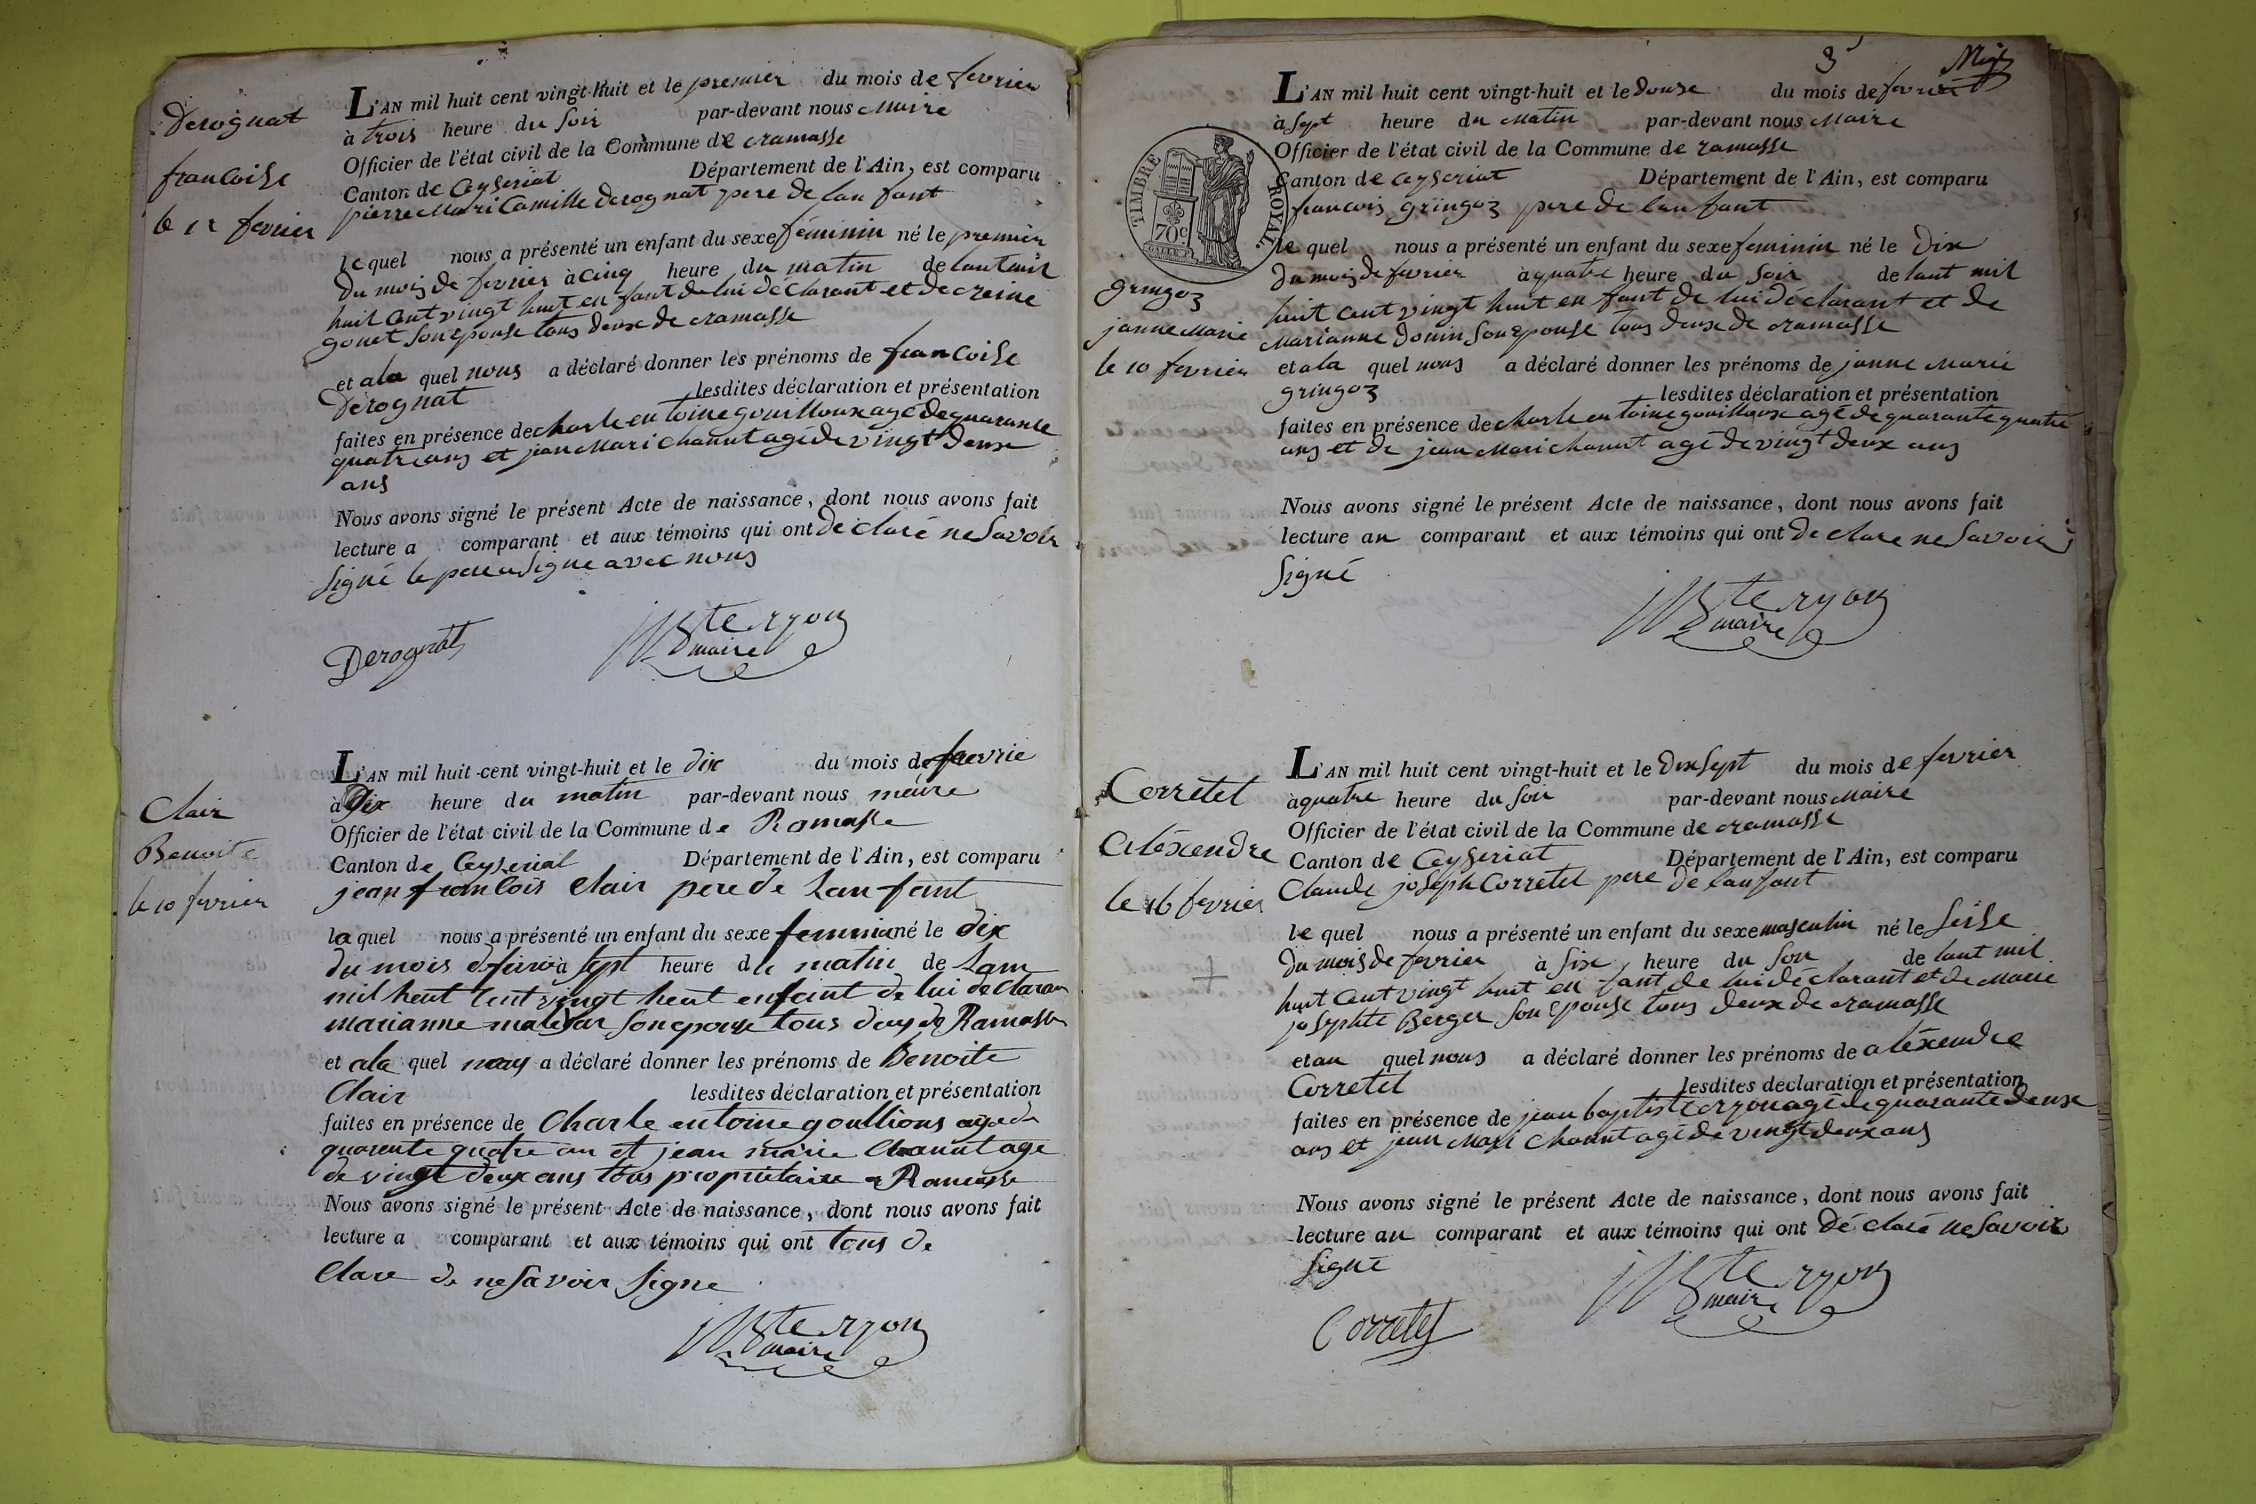 Derognat
francoise
le 1r fevrier
L'AN mil huit cent vingt-huit et le premier du mois de fevrier
à trois heure du soir par-devant nous maire
Officier de l'état civil de la Commune de ramasse
Canton de Ceyseriat Département de l'Ain, est comparu
pierre Mari Camille Derognat pere de lan fant
le quel nous a présenté un enfant du sexe féminin né le premier
du mois de fevrier à cinq heure du matin de lant mil
huit cent vingt huit en fant de lui déclarant et de reine
gonet son epouse tous deux de ramasse
et a la quel nous a déclaré donner les prénoms de francoise
Derognat lesdites déclaration et présentation
faites en présence de charle en toine gouilloux agé de quarante
quatre ans et jean Mari chanut agé de vingt deux
ans
Nous avons signé le présent Acte de naissance, dont nous avons fait
lecture a comparant et aux témoins qui ont de claré ne savoir
signé le pere a signe avec nous
Derognat
JB te ryon
maire
Clair
Benoite
le 10 fevrier
L'AN mil huit-cent vingt-huit et le dix du mois de fevrie
à Dix heure du matin par-devant nous maire
Officier de l'état civil de la Commune de Ramasse
Canton de Ceyseriat Département de l'Ain, est comparu
jean francois clair pere de Lan fant
la quel nous a présenté un enfant du sexe feminin né le dix
du mois à sept heure du matin de Lam
mil heut cent vingt heut enfant de lui de claran
marianne son epouse tous deux de Ramasse
et a la quel nous a déclaré donner les prénoms de Benoite
Clair lesdites déclaration et présentation
faites en présence de Charle entoine goullious age de
quarente quatre an et jean marie Chanut age
de vingt deux ans tous propriétaire a Ramasse
Nous avons signé le présent Acte de naissance, dont nous avons fait
lecture a comparant et aux témoins qui ont tous de
Clare de ne savoir signe
JB te ryon
maire
3
L'AN mil huit cent vingt-huit et le douse du mois de fevrier
à sept heure du matin par-devant nous maire
Officier de l'état civil de la Commune de ramasse
Canton de Ceyseriat Département de l'Ain, est comparu
francois gringoz pere de lan fant
TIMBRE ROYAL.
70c
le quel nous a présenté un enfant du sexe feminin né le dix
du mois de fevrier à quatre heure du soir de lant mil
huit cent vingt huit en fant de lui déclarant et de
marianne donin son epouse tous deux de ramasse
gringoz
janne Marie
le 10 fevrier
et a la quel nous a déclaré donner les prénoms de janne Marie
gringoz lesdites déclaration et présentation
faites en présence de charle en toine gouilloux agé de quarante quatre
ans et de jean Mari chanut agé de vingt deux ans
Nous avons signé le présent Acte de naissance, dont nous avons fait
lecture au comparant et aux témoins qui ont de claré ne savoir
signé
JB te ryon
maire
Corretel
Aléxendre
le 16 fevrier
L'AN mil huit cent vingt-huit et le dix sept du mois de fevrier
à quatre heure du soir par-devant nous maire
Officier de l'état civil de la Commune de ramasse
Canton de Ceyseriat Département de l'Ain, est comparu
Claude joseph Corretel pere de lanfant
le quel nous a présenté un enfant du sexe masculin né le seise
du mois de fevrier à six heure du soir de lant mil
huit cent vingt huit en fant de lui déclarant et de Marie
josephte Berger son epouse tous deux de ramasse
et au quel nous a déclaré donner les prénoms de aléxendre
Corretel lesdites déclaration et présentation
faites en présence de jean baptiste ryon agé de quarante deux
ans et jean Mari chanut agé de vingt deux ans
Nous avons signé le présent Acte de naissance, dont nous avons fait
lecture au comparant et aux témoins qui ont dé claré ne savoir
signé
Corretel
JB te ryon
maire